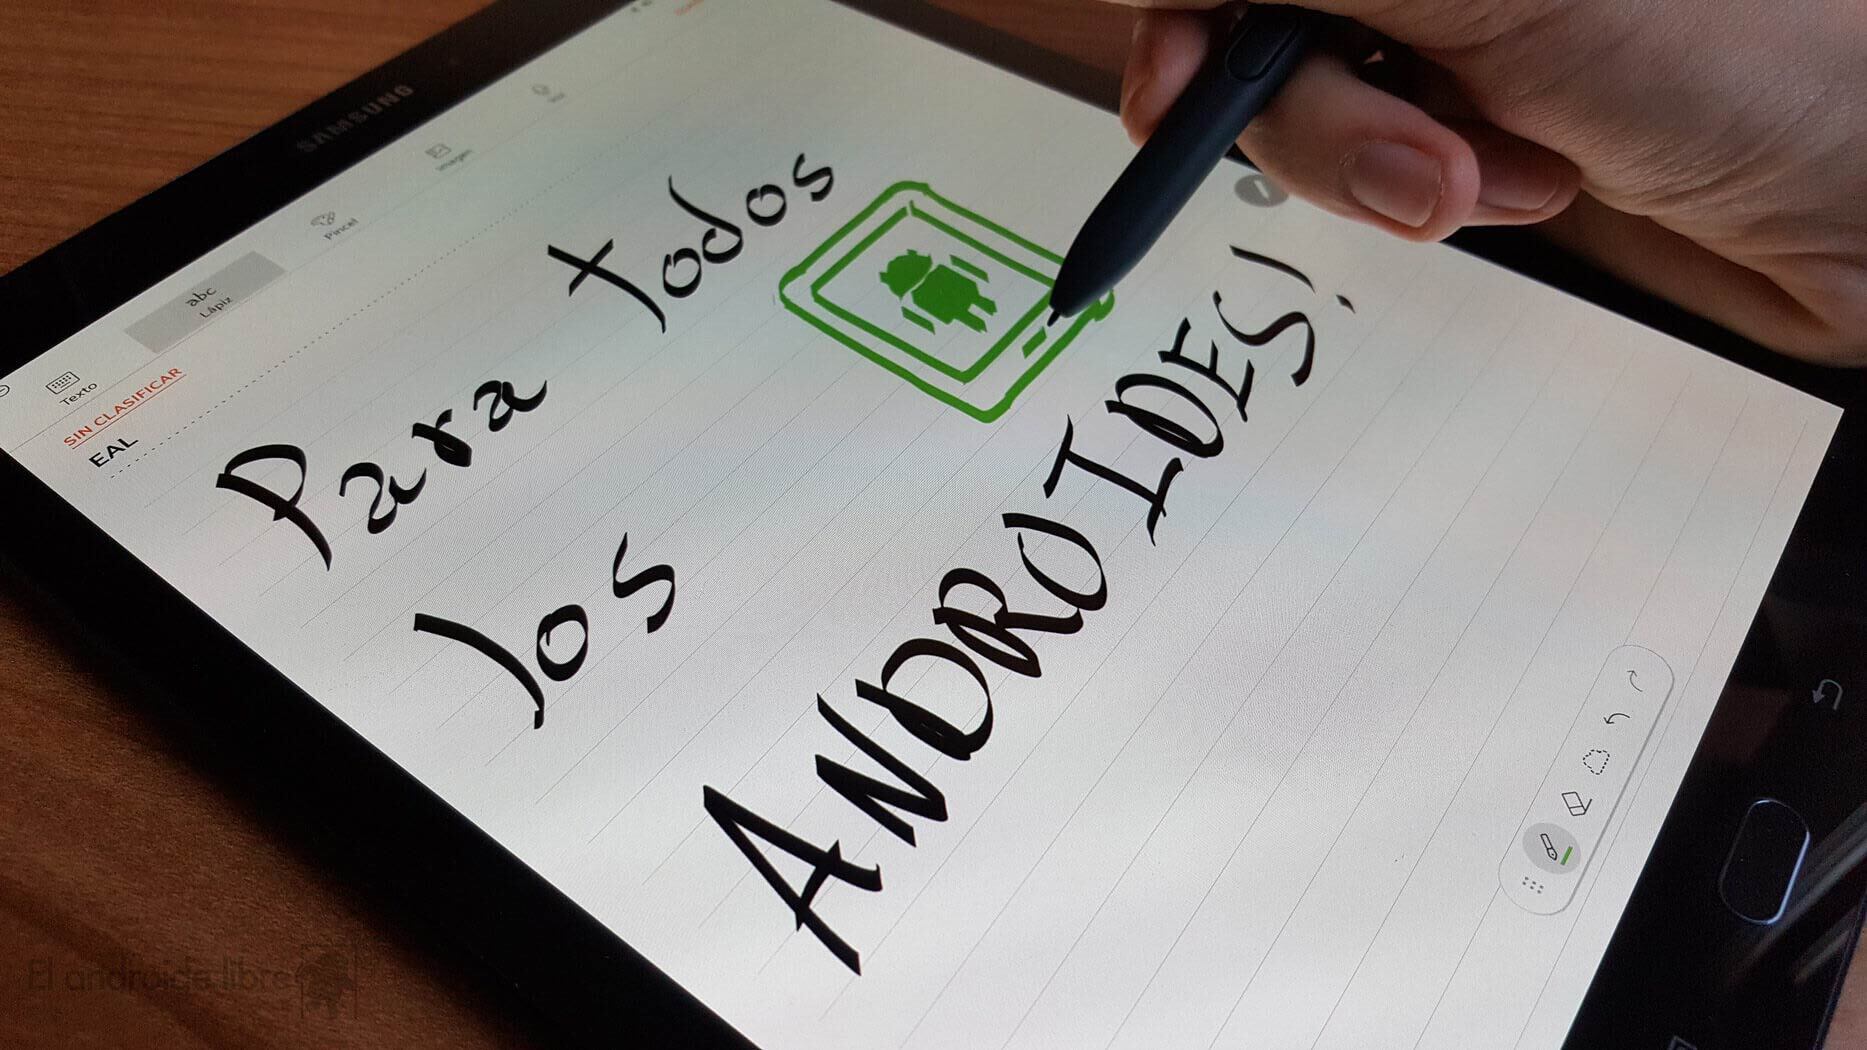 SAMSUNG
Texto
abc
Lápiz
Pincel
Imagen
SIN CLASIFICAR
EAL
Para todos
los
ANDROIDES!
El androide libre